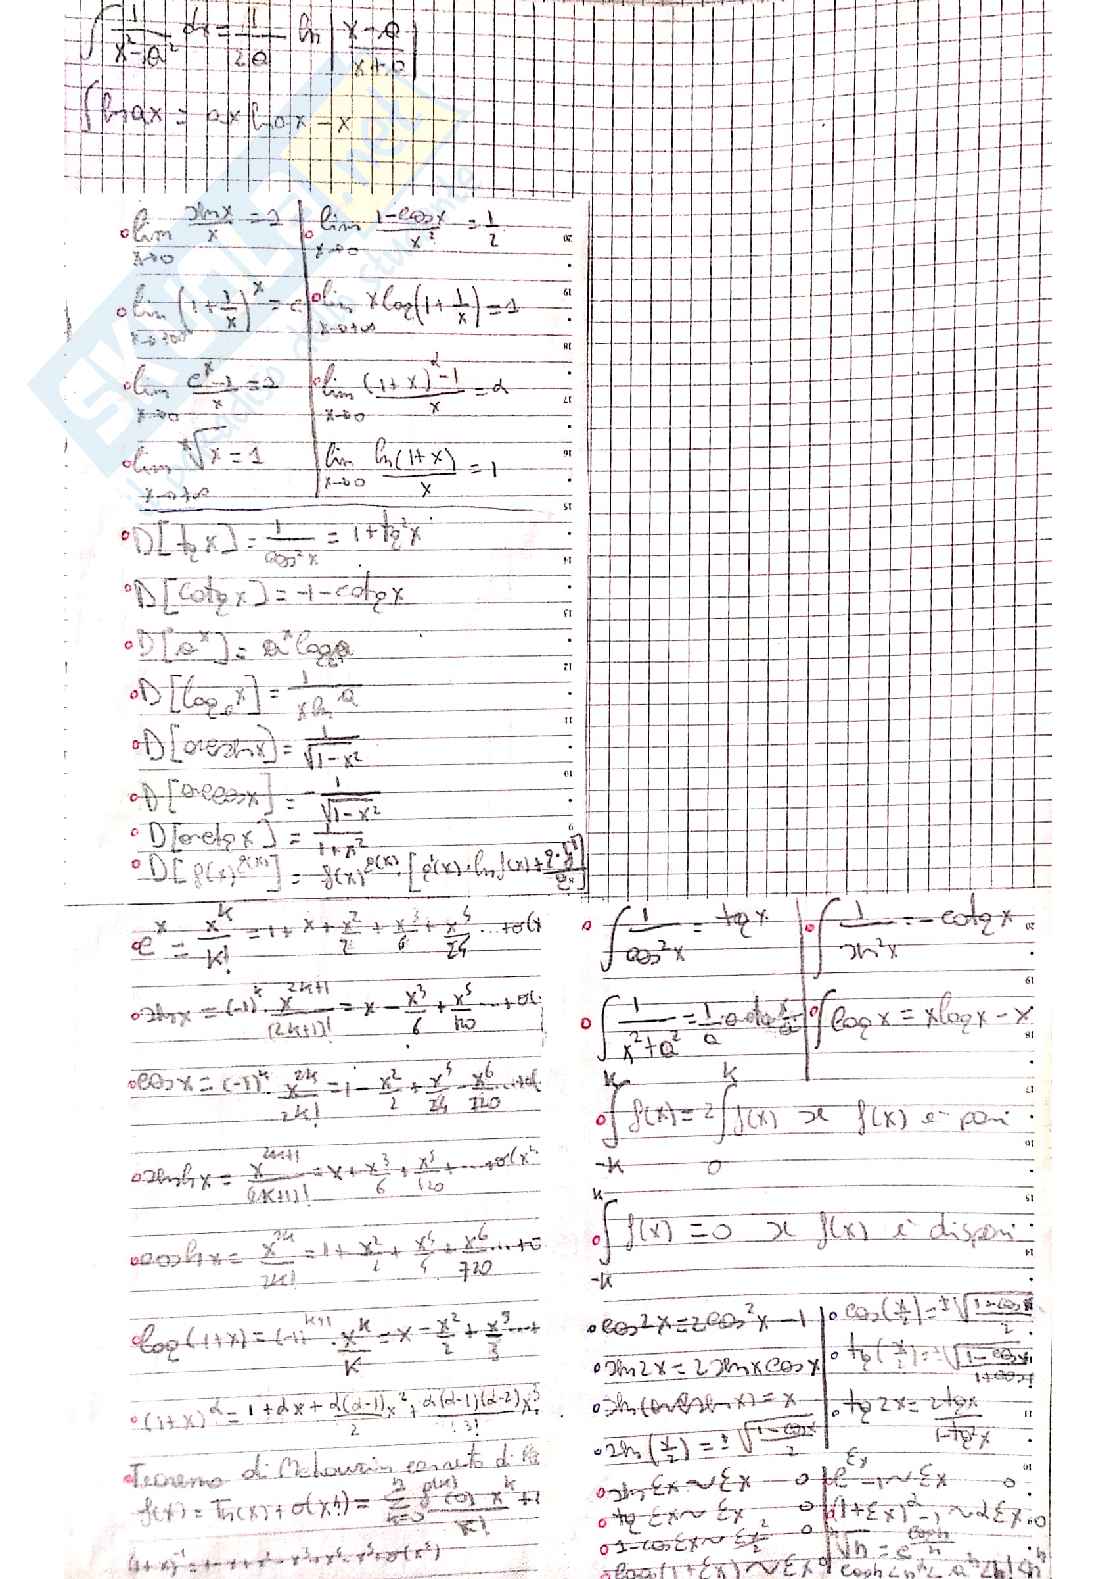 ∫ 1/(x²-a²) dx = 1/(2a) ln |(x-a)/(x+a)|
∫ ln ax = ax ln ax - x
lim x→0 sin x/x = 1
lim x→0 (1-cos x)/x² = 1/2
lim x→+∞ (1+1/x)^x = e
lim x→+∞ x log(1+1/x) = 1
lim x→0 (e^x-1)/x = 1
lim x→0 ((1+x)^α-1)/x = α
lim x→+∞ ˣ√x = 1
lim x→0 ln(1+x)/x = 1
D[tg x] = 1/cos²x = 1+tg²x
D[cotg x] = -1-cotg x
D[a^x] = a^x log a
D[log_a x] = 1/(x ln a)
D[arcsin x] = 1/√(1-x²)
D[arccos x] = -1/√(1-x²)
D[arctg x] = 1/(1+x²)
D[f(x)^g(x)] = f(x)^g(x) · [g'(x)·ln f(x)+
e^x = x^k/k! = 1+x+x²/2+x³/6+x⁵/24...+o(x
sin x = (-1)^k · x^(2k+1)/(2k+1)! = x - x³/6 + x⁵/120 ...+o(
cos x = (-1)^k · x^(2k)/2k! = 1 - x²/2 + x⁵/24 - x⁶/720 ...+o(
sinh x = x^(2k+1)/(2k+1)! = x + x³/6 + x⁵/120 + ...+o(x
cosh x = x^(2k)/2k! = 1 + x²/2 + x⁴/4 + x⁶/720 ...+o
log(1+x) = (-1)^(k+1) · x^k/k = x - x²/2 + x³/3 ...+
(1+x)^α = 1+αx+α(α-1)/2 x² + α(α-1)(α-2)/3! x³
Teorema di
f(x) = Tn(x) + o(x^n) = Σ k=0 n f^(k)(0)/k! x^k +
∫ 1/cos²x = tg x
∫ 1/sin²x = -cotg x
∫ 1/(x²+a²) = 1/a arctg x/a
∫ log x = x log x - x
∫ -k k f(x) = 2 ∫ 0 k f(x) se f(x) è pari
∫ -k k f(x) = 0 se f(x) è dispari
cos 2x = 2cos²x - 1
cos(x/2) = ±√((1+cos x)/2)
sin 2x = 2 sin x cos x
tg(x/2) = ±√((1-cos x)/(1+cos x))
sin(arcsin x) = x
tg 2x = 2tg x/(1-tg²x)
sin(x/2) = ±√((1-cos x)/2)
sin εx ~ εx → 0
e^εx - 1 ~ εx → 0
tg εx ~ εx → 0
(1+εx)^α - 1 ~ αεx → 0
1-cos εx ~ εx²/2 → 0
log(1+εx) ~ εx → 0